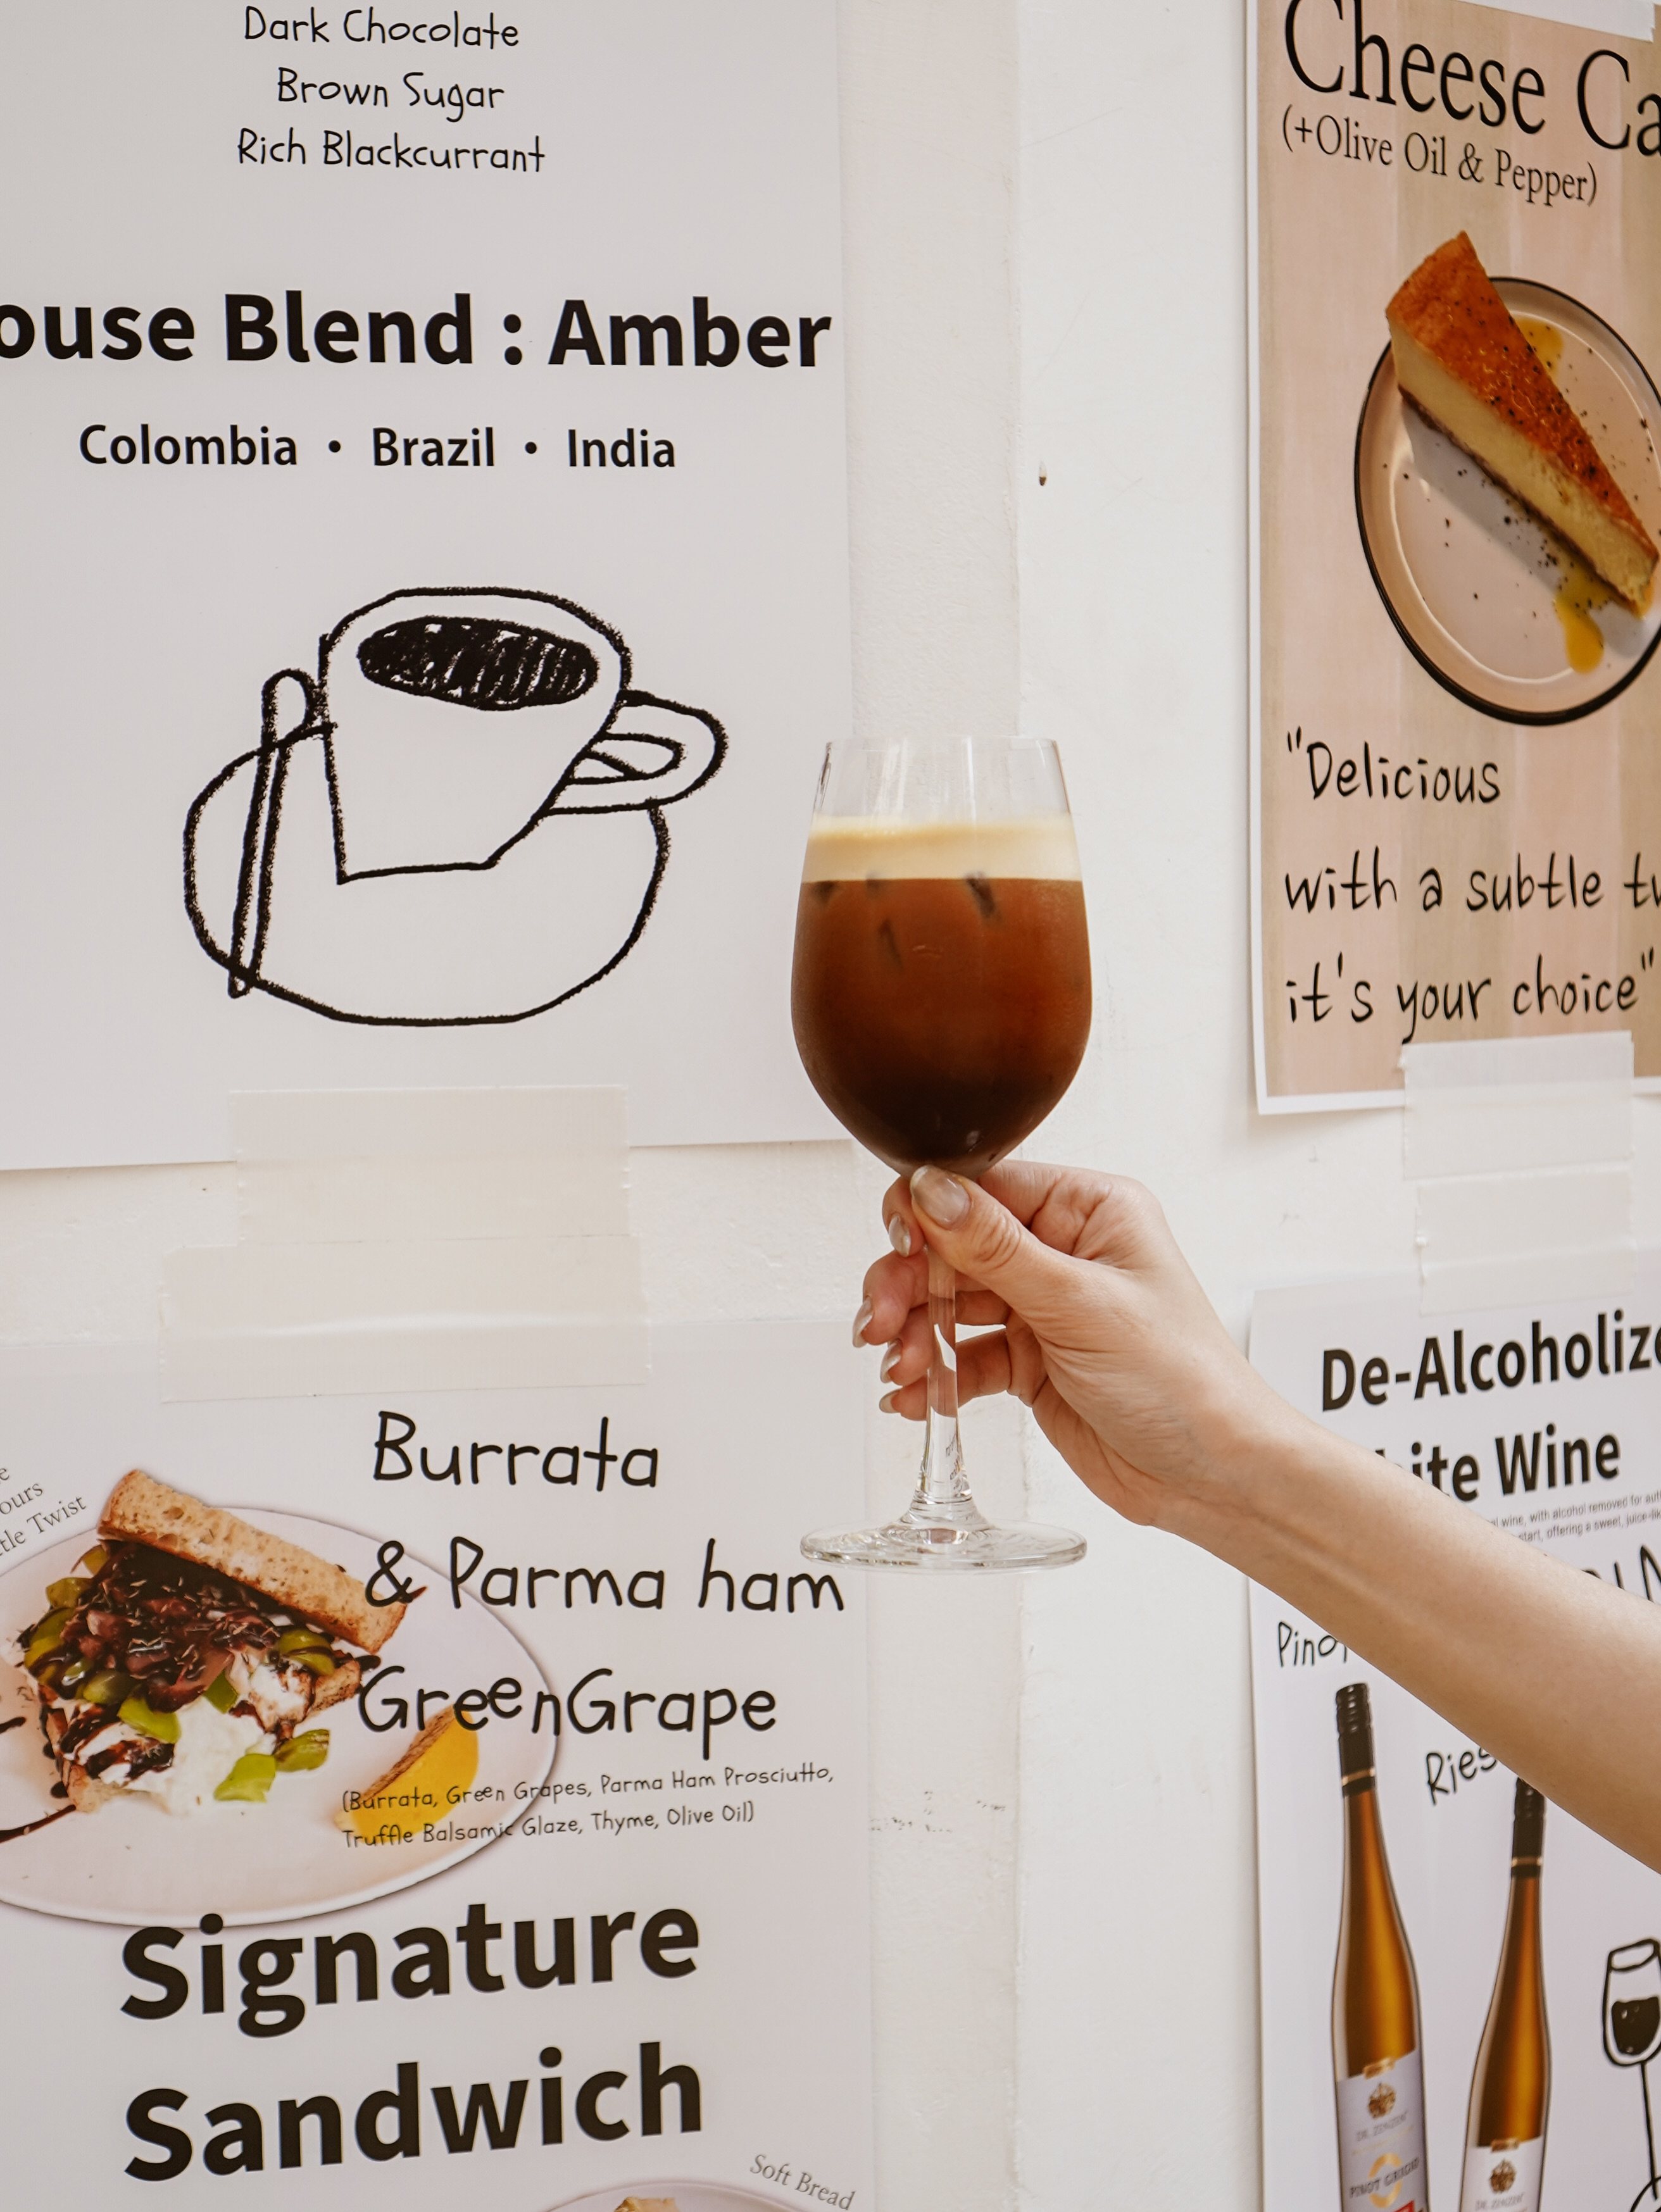 Dark Chocolate
Brown Sugar
Rich Blackcurrant
ouse Blend : Amber
Colombia • Brazil • India
Cheese Ca
(+Olive Oil & Pepper)
"Delicious
with a subtle tw
it's your choice"
Burrata
& Parma ham
GreenGrape
(Burrata, Green Grapes, Parma Ham Prosciutto,
Truffle Balsamic Glaze, Thyme, Olive Oil)
ours
tle Twist
Signature
Sandwich
Soft Bread
De-Alcoholize
ite Wine
wine, with alcohol removed for
start, offering a sweet,
Pino
Ries
DR. ZENZEN
PINOT GRIGIO
DR. ZENZEN